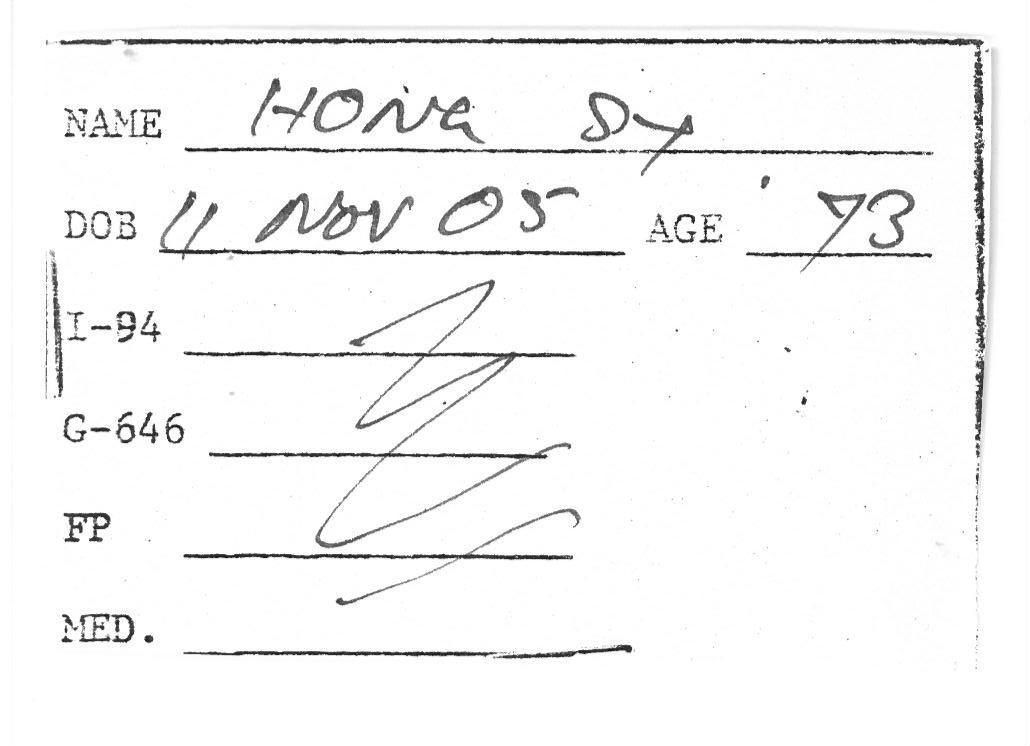 NAME HONG SY
DOB 11 NOV 05 AGE 73
I-94
G-646
FP
MED.